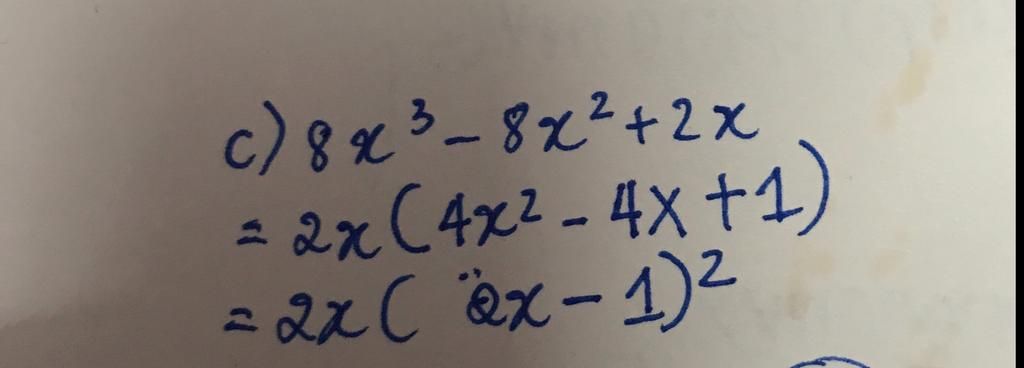 c) 8x³ - 8x² + 2x
= 2x(4x² - 4x + 1)
= 2x( 2x - 1)²